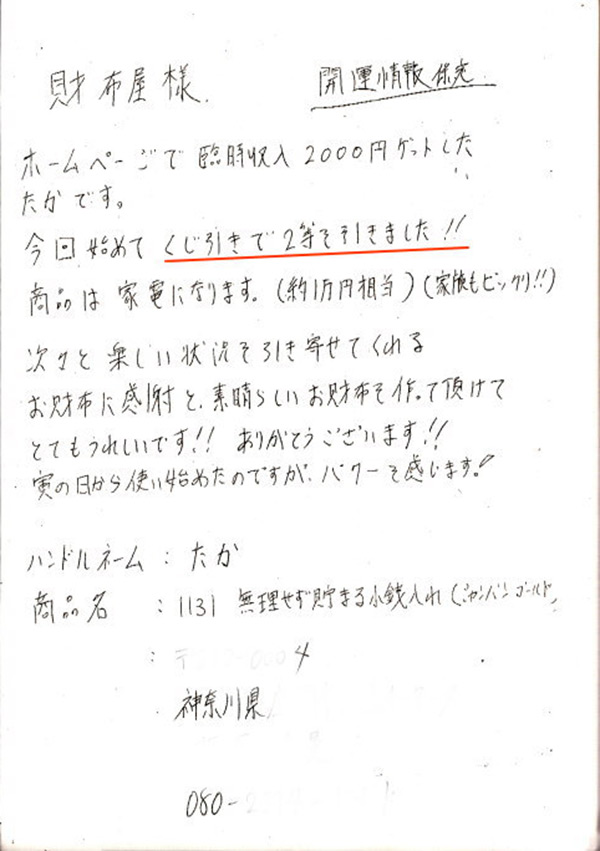 財布屋様
開運情報係宛
ホームページで臨時収入2000円ゲットした
たかです。
今回始めてくじ引きで2等を引きました!!
商品は家電になります。(約1万円相当)(家族もビックリ!!)
次々と楽しい状況を引き寄せてくれる
お財布に感謝と、素晴らしいお財布を作って頂けて
とてもうれしいです!! ありがとうございます!!
寅の日から使い始めたのですが、パワーを感じます!
ハンドルネーム:たか
商品名 :1131 無理せず貯まる小銭入れ(シャンパンゴールド)
:〒 4
神奈川県
080-